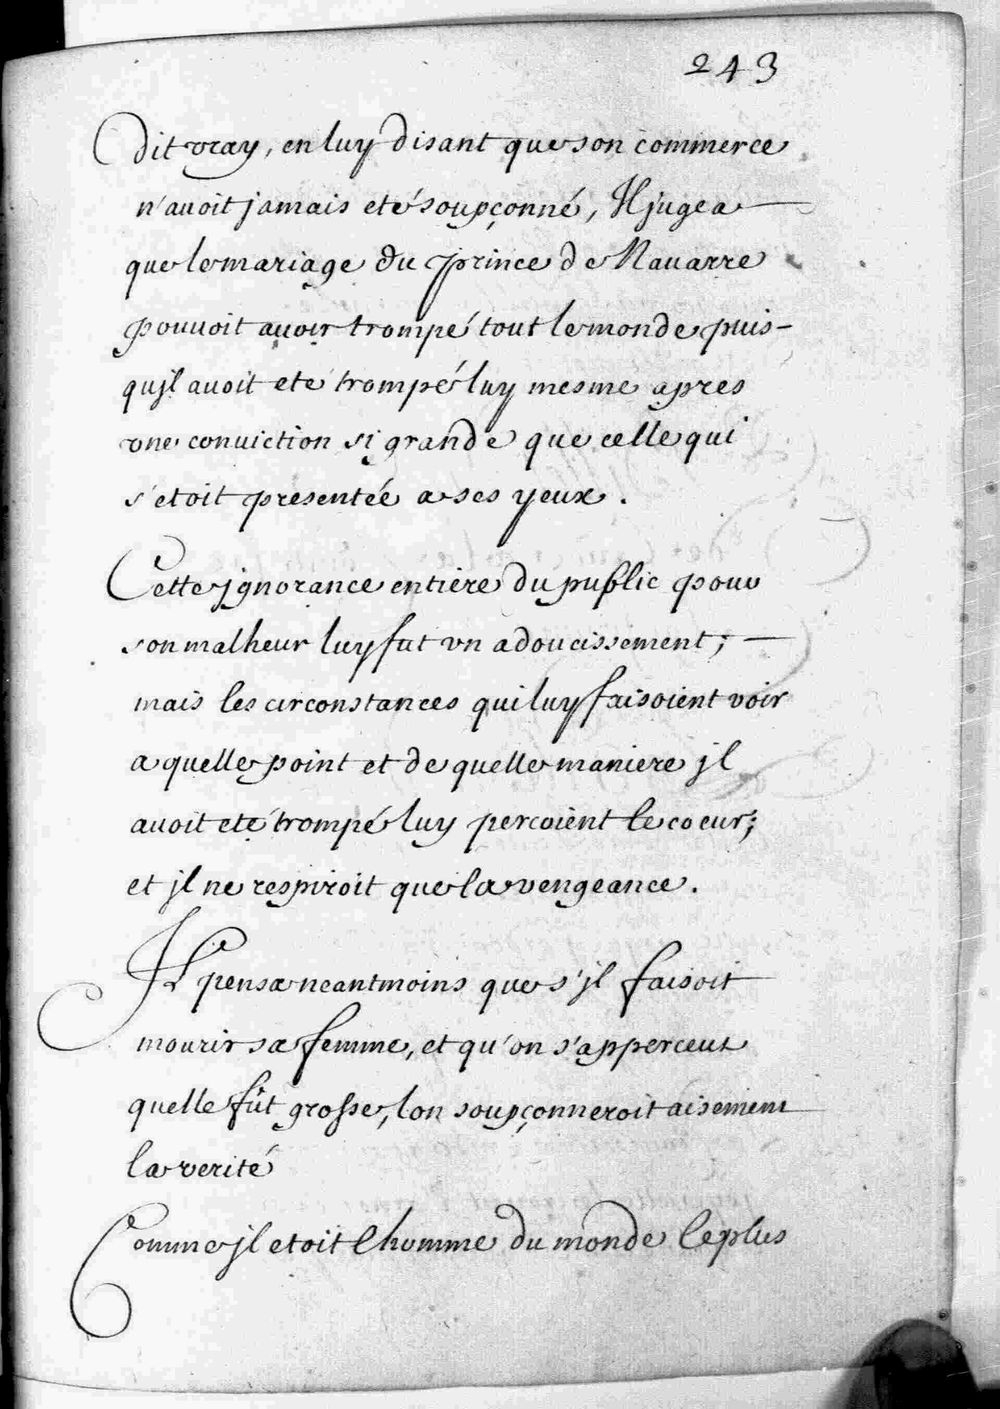 243
Dit vray, en luy disant que son commerce
n'auoit jamais eté soupçonné, Il jugea
que le mariage du prince de Nauarre
pouuoit auoir trompé tout le monde puis-
qujl auoit eté trompé luy mesme apres
vne conuiction si grande que celle qui
s'etoit presentée a ses yeux.
Cette jgnorance entiere du public pour
son malheur luy fut vn adoucissement;
mais les circonstances qui luy faisoient voir
a quelle point et de quelle maniere jl
auoit eté trompé luy percoient le coeur;
et jl ne respiroit que la vengeance.
Il pensa neantmoins que s'jl faisoit
mourir sa femme, et qu'on s'apperceut
quelle fût grosse, lon soupçonneroit aisement
la verité
Comme jl etoit lhomme du monde le plus